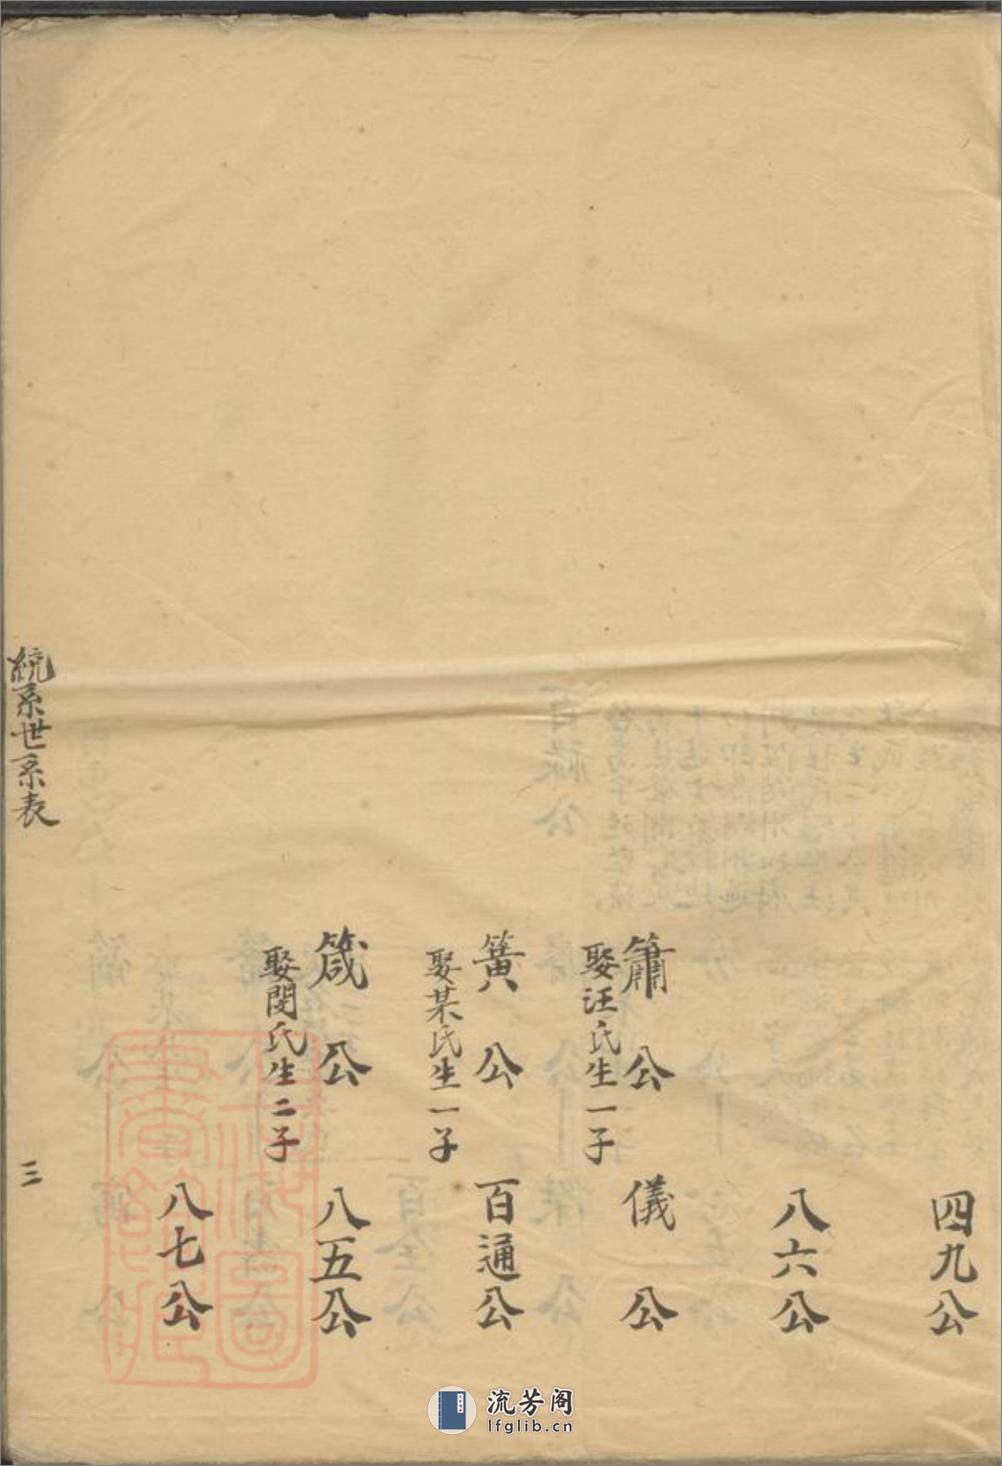 四九公
八六公
簫公
娶汪氏生一子
儀公
簧公
娶某氏生一子
百通公
箴公
娶閔氏生二子
八五公
八七公
統系世系表
三
流芳阁
lfglib.cn